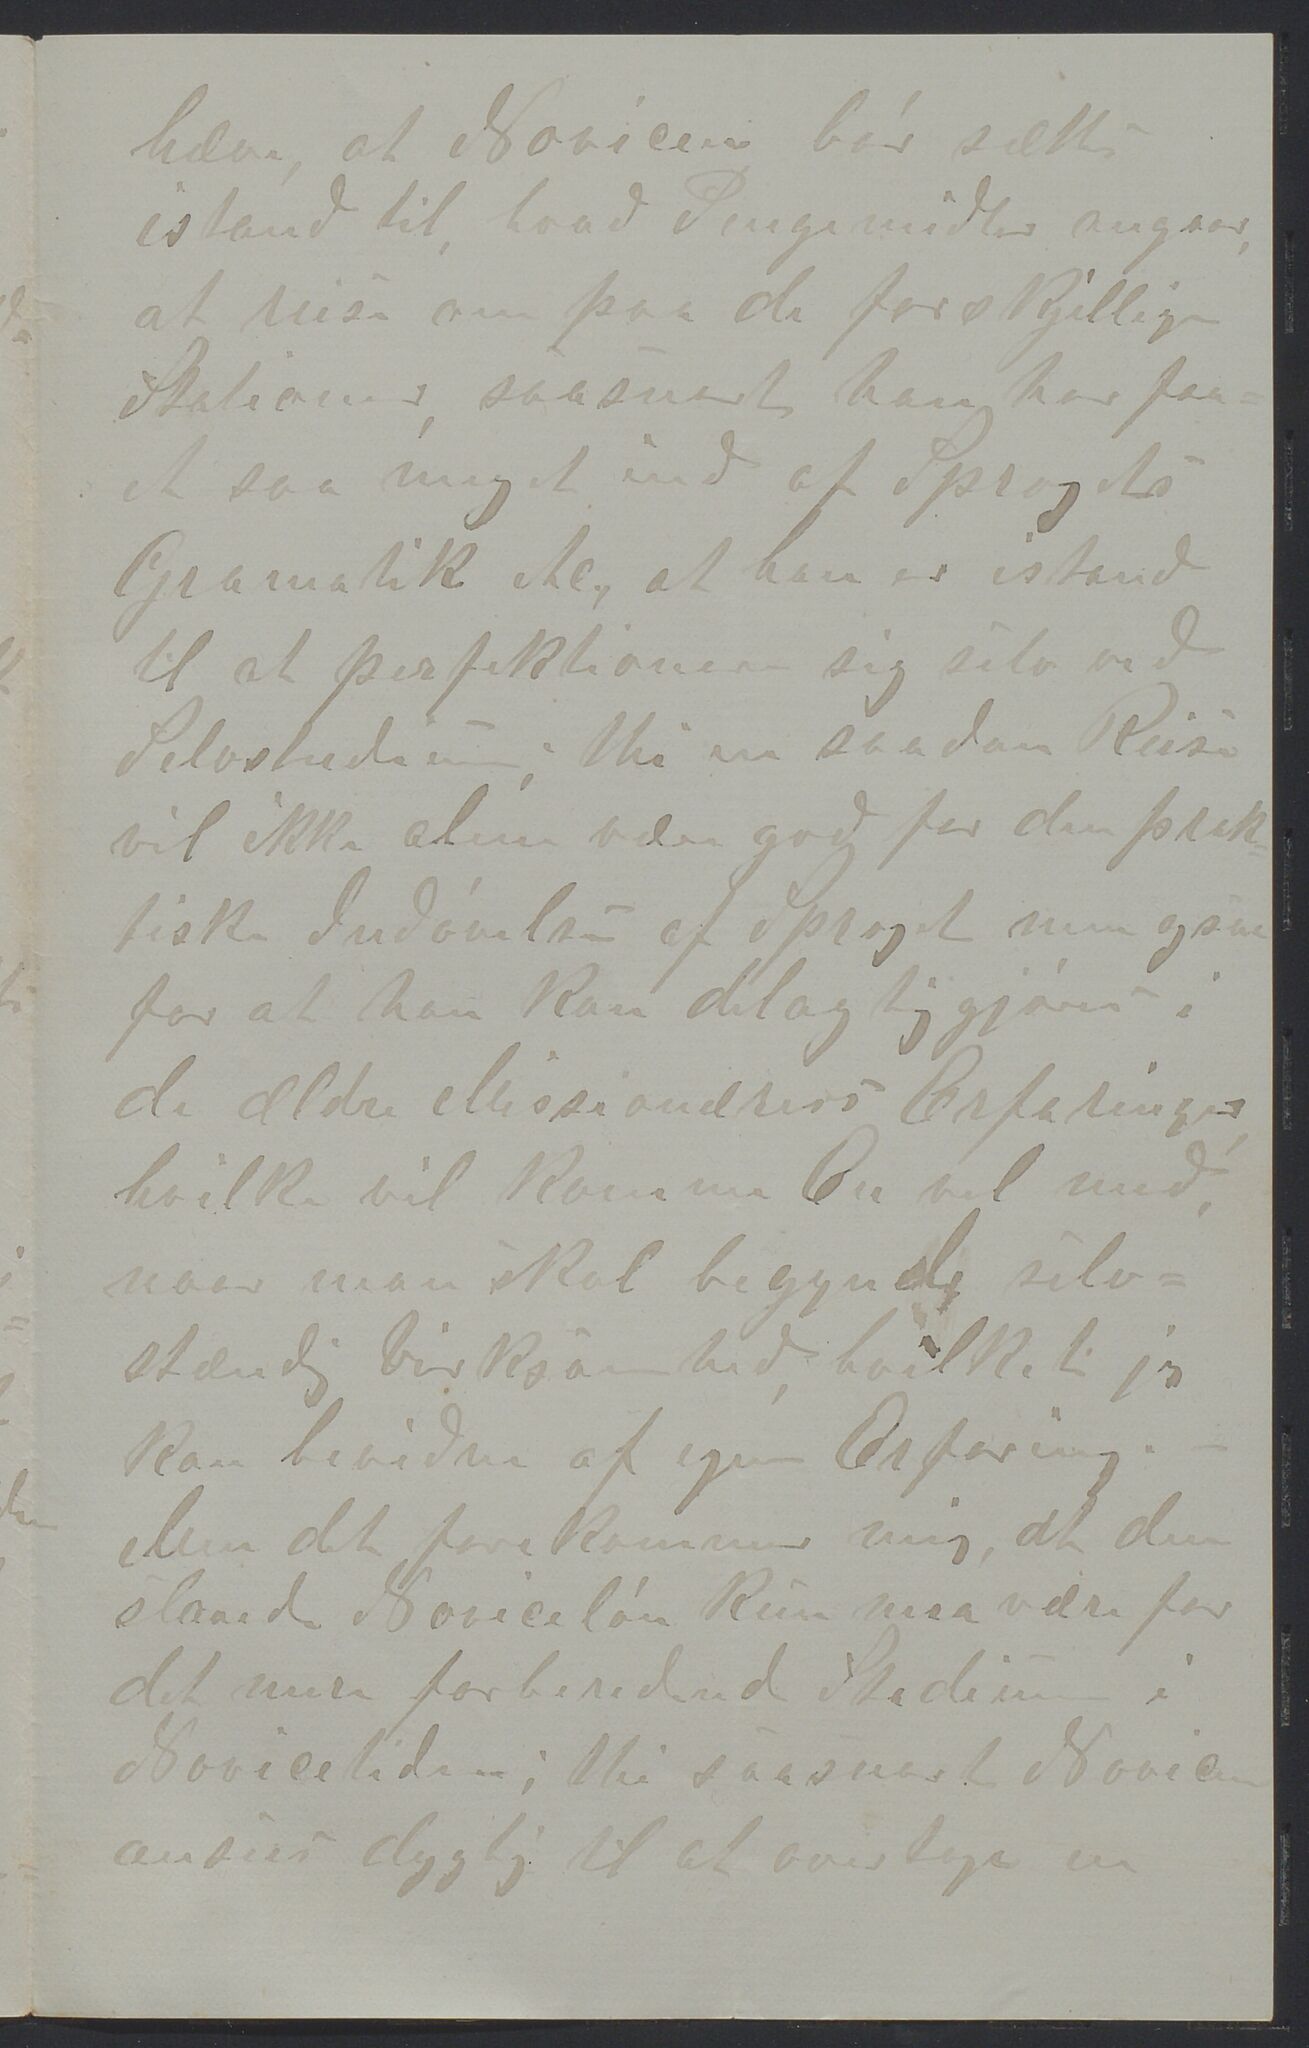 hæve, at Novicen bör sættes
istand til, hvad Pengemidler angaar,
at reise om paa de forskjellige
Stationer, saasnart han har faa=
et saa meget ind af Sprogets
Gramatik etc., at han er istand
til at perfektionere sig selv ved
Selvstudium; thi en saadan Reise
vil ikke alene være god for den prak=
tiske Indövelse af Sproget men ogsaa
for at han kan delagtiggjöres i
de ældre Missionærers Erfaringer,
hvilke vil komme En vel med,
naar man skal begynde selv=
stændig Virksomhed, hvilket jeg
kan bevidne af egen Erfaring. –
Men det forekommer mig, at den
slaaede Novicelön kun maa være for
det mere forberedende Stadium i
Novicetiden; thi saasnart Novicen
ansees dygtig til at overtage en